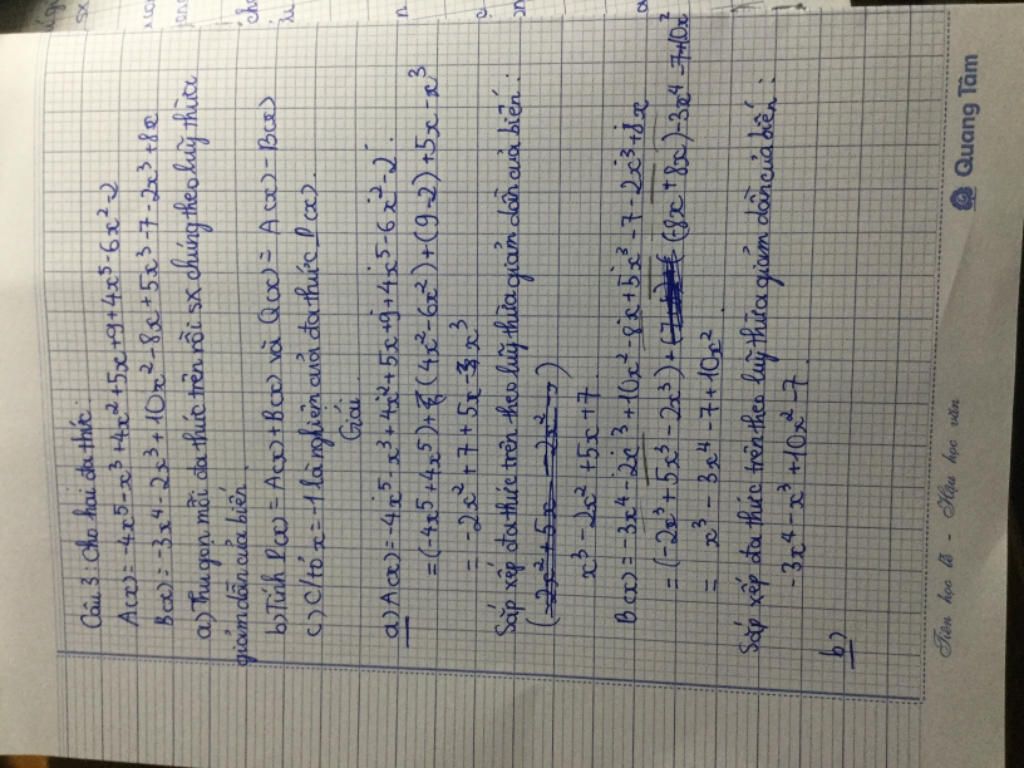 Câu 3: Cho hai đa thức:
A(x) = -4x⁵ - x³ + 4x² + 5x + 9 + 4x⁵ - 6x² - 2
B(x) = -3x⁴ - 2x³ + 10x² - 8x + 5x³ - 7 - 2x³ + 8x
a) Thu gọn mỗi đa thức trên rồi sx chúng theo luỹ thừa
giảm dần của biến
b) Tính P(x) = A(x) + B(x) và Q(x) = A(x) - B(x)
c) C/tỏ x = -1 là nghiệm của đa thức P(x).
Giải
a) A(x) = -4x⁵ - x³ + 4x² + 5x + 9 + 4x⁵ - 6x² - 2
= (-4x⁵ + 4x⁵) + (4x² - 6x²) + (9 - 2) + 5x - x³
= -2x² + 7 + 5x - x³
Sắp xếp đa thức trên theo luỹ thừa giảm dần của biến:
x³ - 2x² + 5x + 7
B(x) = -3x⁴ - 2x³ + 10x² - 8x + 5x³ - 7 - 2x³ + 8x
= (-2x³ + 5x³ - 2x³) + (8x + 8x) - 3x⁴ - 7 + 10x²
= x³ - 3x⁴ - 7 + 10x²
Sắp xếp đa thức trên theo luỹ thừa giảm dần của biến:
-3x⁴ - x³ + 10x² - 7
b)
Tiên học lễ - Hậu học văn
Quang Tâm